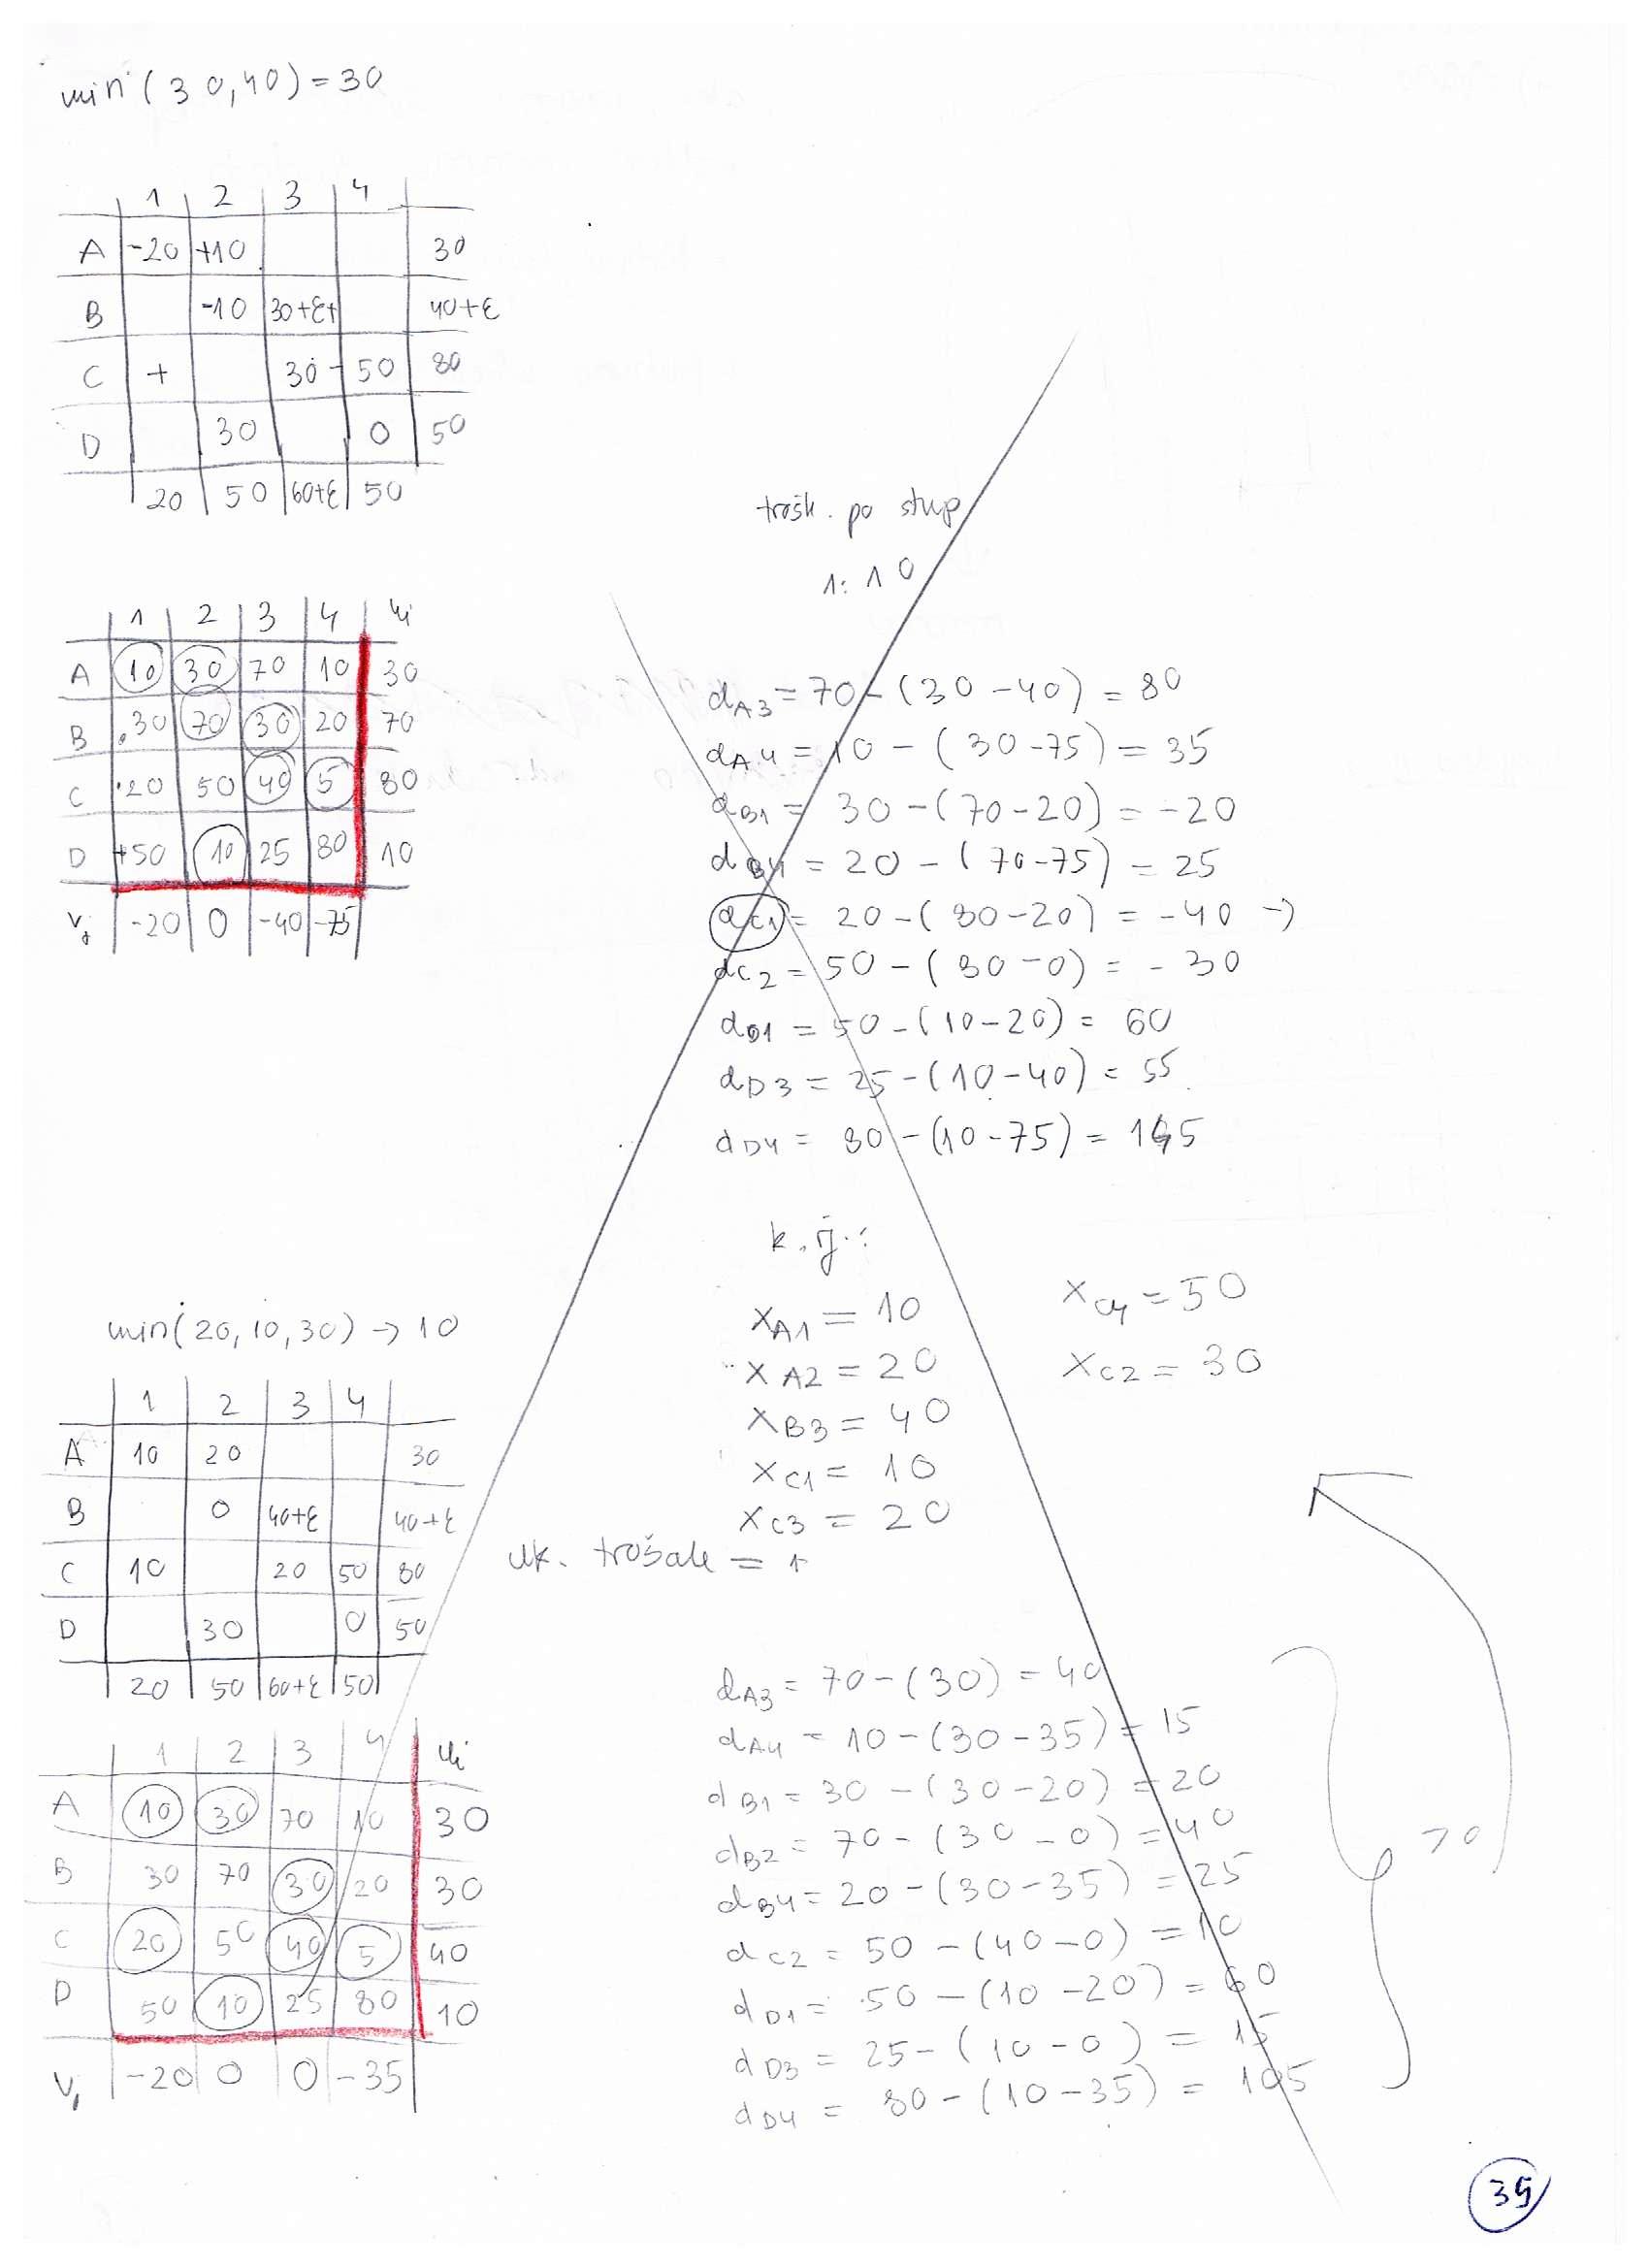 min (30,40) = 30
1 2 3 4
A -20 +10 30
B -10 30+ε+ 40+ε
C + 30- 50 80
D 30 0 50
20 50 60+ε 50
trošk. po stup
1: 10
1 2 3 4 ui
A 10 30 70 10 30
B .30 70 30 20 70
C .20 50 40 5 80
D +50 10 25 80 10
vj -20 0 -40 -75
dA3 = 70 - (30 - 40) = 80
dA4 = 10 - (30-75) = 35
dB1 = 30 - (70-20) = -20
dB4 = 20 - (70-75) = 25
dC1 = 20 - (80-20) = -40 →
dC2 = 50 - (80-0) = -30
dD1 = 50 - (10-20) = 60
dD3 = 25 - (10-40) = 55
dD4 = 80 - (10-75) = 145
k.j.:
xA1 = 10
xA2 = 20
xB3 = 40
xC1 = 10
xC3 = 20
xC4 = 50
xC2 = 30
uk. =
min(20,10,30) → 10
1 2 3 4
A 10 20 30
B 0 40+ε 40+ε
C 10 20 50 80
D 30 0 50
20 50 60+ε 50
1 2 3 4 ui
A 10 30 70 10 30
B 30 70 30 20 30
C 20 50 40 5 40
D 50 10 25 80 10
vj -20 0 0 -35
dA3 = 70 - (30) = 40
dA4 = 10 - (30-35) = 15
dB1 = 30 - (30-20) = 20
dB2 = 70 - (30-0) = 40
dB4 = 20 - (30-35) = 25
dC2 = 50 - (40-0) = 10
dD1 = 50 - (10-20) = 60
dD3 = 25 - (10-0) = 15
dD4 = 80 - (10-35) = 105
>0
35